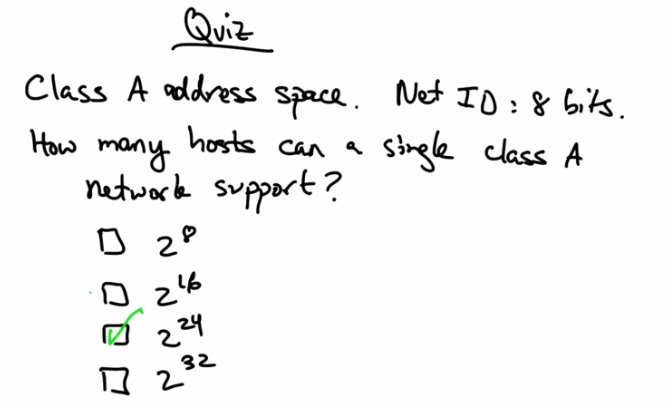 Quiz
Class A address space. Net ID: 8 bits.
How many hosts can a single class A
network support?
2^8
2^16
2^24
2^32